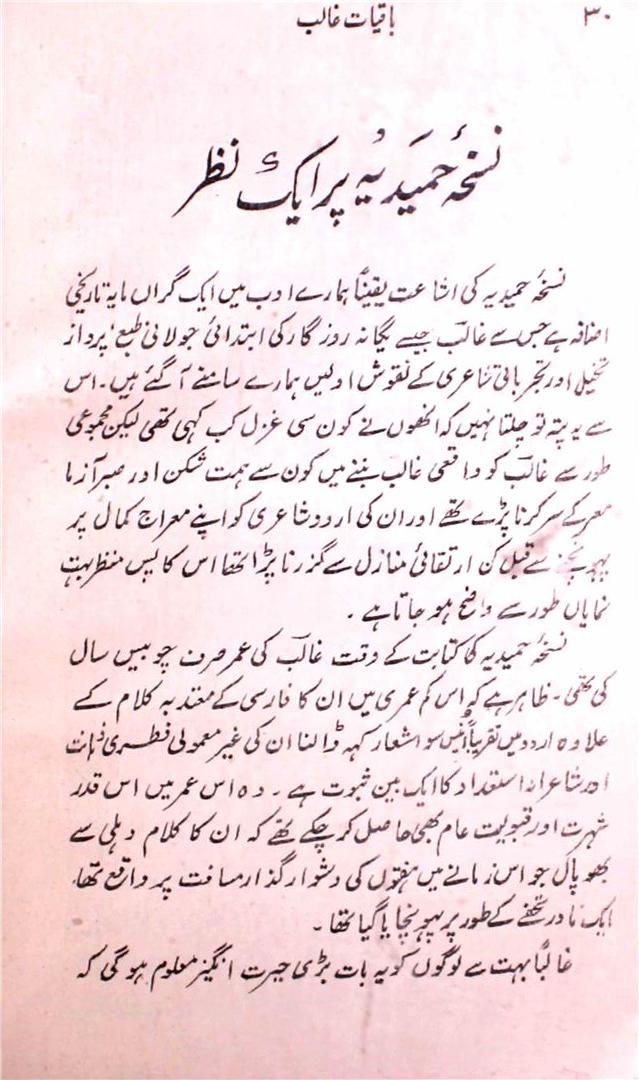 ۳۰
باقیات غالب
نسخۂ حمیدیہ پر ایک نظر
نسخۂ حمیدیہ کی اشاعت یقیناً ہمارے ادب میں ایک گراں مایہ تاریخی
اضافہ ہے جس سے غالبؔ جیسے یگانہ روزگار کی ابتدائی جولانی طبع، پرواز
تخیل اور تجرباتی شاعری کے نقوش اولیں ہمارے سامنے آ گئے ہیں۔ اس
سے یہ پتہ تو چلتا نہیں کہ انھوں نے کون سی غزل کب کہی تھی لیکن مجموعی
طور سے غالبؔ کو واقعی غالب بننے میں کون سے ہمت شکن اور صبر آزما
معرکے سر کرنا پڑے تھے اور ان کی اردو شاعری کو اپنے معراج کمال پر
پہونچنے سے قبل کن ارتقائی منازل سے گزرنا پڑا تھا اس کا پس منظر بہت
نمایاں طور سے واضح ہو جاتا ہے۔
نسخۂ حمیدیہ کی کتابت کے وقت غالبؔ کی عمر صرف چوبیس سال
کی تھی۔ ظاہر ہے کہ اس کم عمری میں ان کا فارسی کے معتدبہ کلام کے
علاوہ اردو میں تقریباً انیس سو اشعار کہہ ڈالنا ان کی غیر معمولی فطری ذہانت
اور شاعرانہ استعداد کا ایک بین ثبوت ہے۔ وہ اس عمر میں اس قدر
شہرت اور قبولیت عام بھی حاصل کر چکے تھے کہ ان کا کلام دہلی سے
بھوپال جو اس زمانے میں ہفتوں کی دشوار گذار مسافت پر واقع تھا،
ایک نادر تحفے کے طور پر پہونچایا گیا تھا۔
غالباً بہت سے لوگوں کو یہ بات بڑی حیرت انگیز معلوم ہو گی کہ